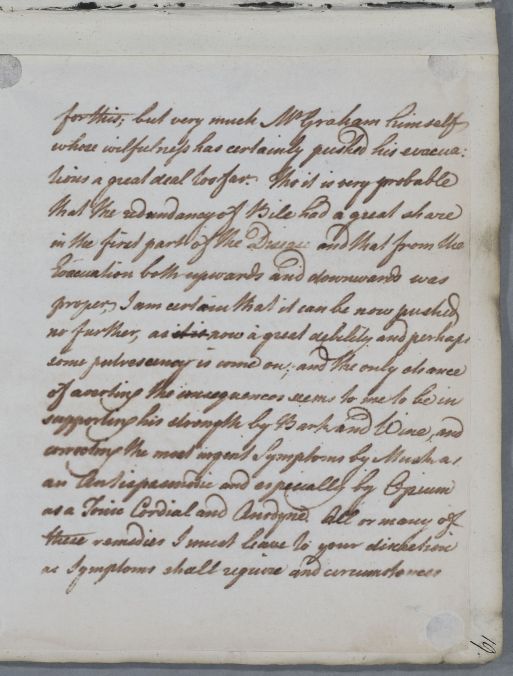 for this, but very much Mr Graham himself
whose wilfulness has certainly pushed his evacua:
tions a great deal too far. Tho it is very probable
that the redundancy of Bile had a great share
in the first part of the Disease and that from the
Evacuation both upwards and downwards was
proper, I am certain that it can be now pushed
no further, as it is now a great debility and perhaps
some putrescency is come on; and the only chance
of averting the consequences seems to me to be in
supporting his strength by Bark and Wine, and
correcting the most urgent Symptoms by Musk as
an Antispasmodic and especially by Opium
as a Tonic Cordial and Anodyne. All or many of
these remedies I must leave to your discretion
as Symptoms shall require and circumstances
61